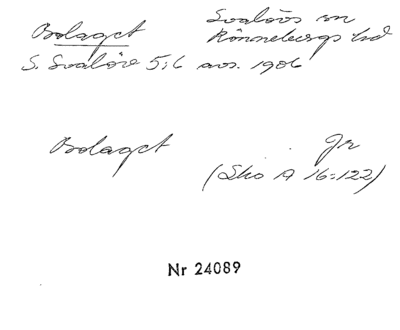 Bolaget Svalövs sn
Rönnebergs hd
S. Svalöv 5:6 avs. 1906
Bolaget Jr
(Sko A 16:122)
Nr 24089